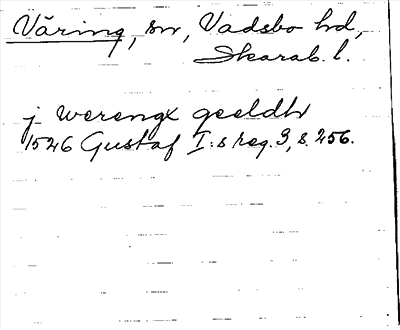 Väring, sn, Vadsbo hd,
Skarab. l.
j werengx geeldh
1526 Gustaf I:s reg. 3, s. 256.